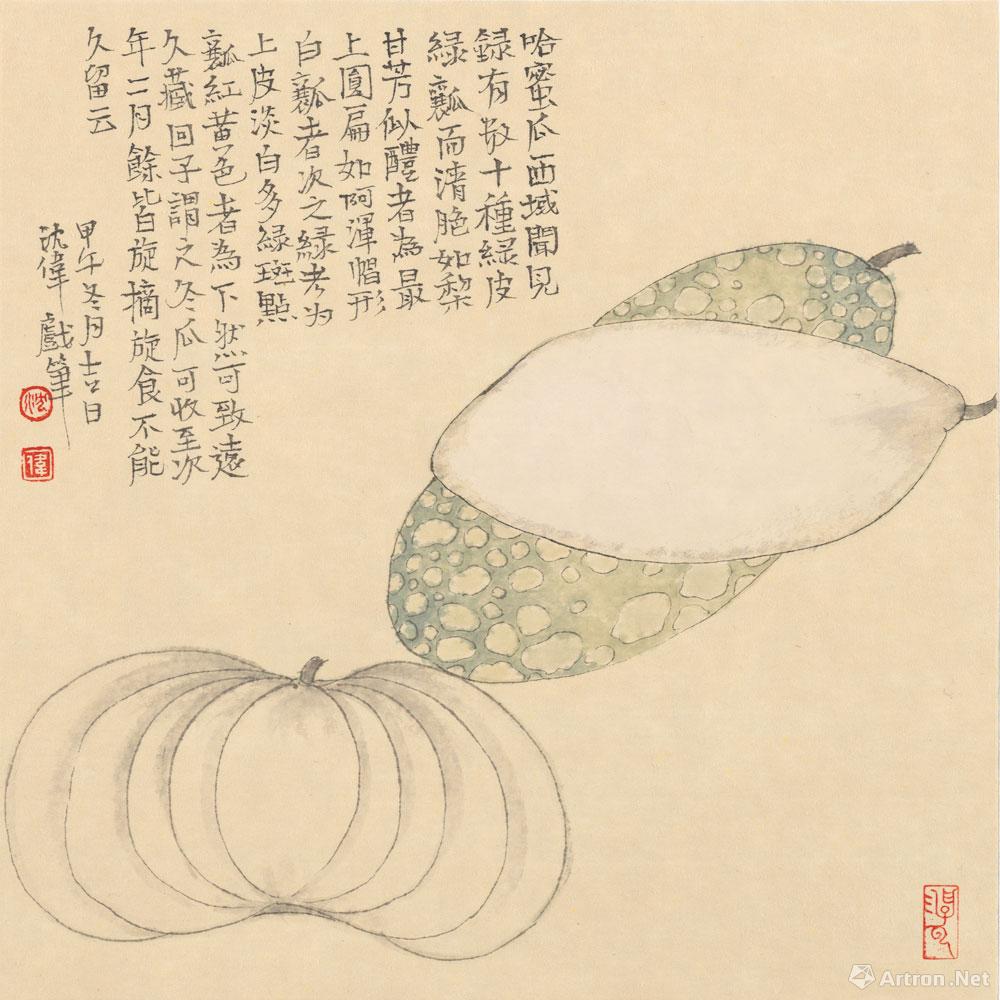 哈蜜瓜西域聞見
録有数十種緑皮
緑瓤而清脆如梨
甘芳似醴者為最
上圓扁如阿渾帽形
白瓤者次之緑者为
上皮淡白多緑斑點
瓤紅黄色者為下然可致遠
久藏回子謂之冬瓜可收至次
年二月餘皆旋摘旋食不能
久留云
甲午冬月廿六日
沈偉戲筆
沈
偉
Artron.Net